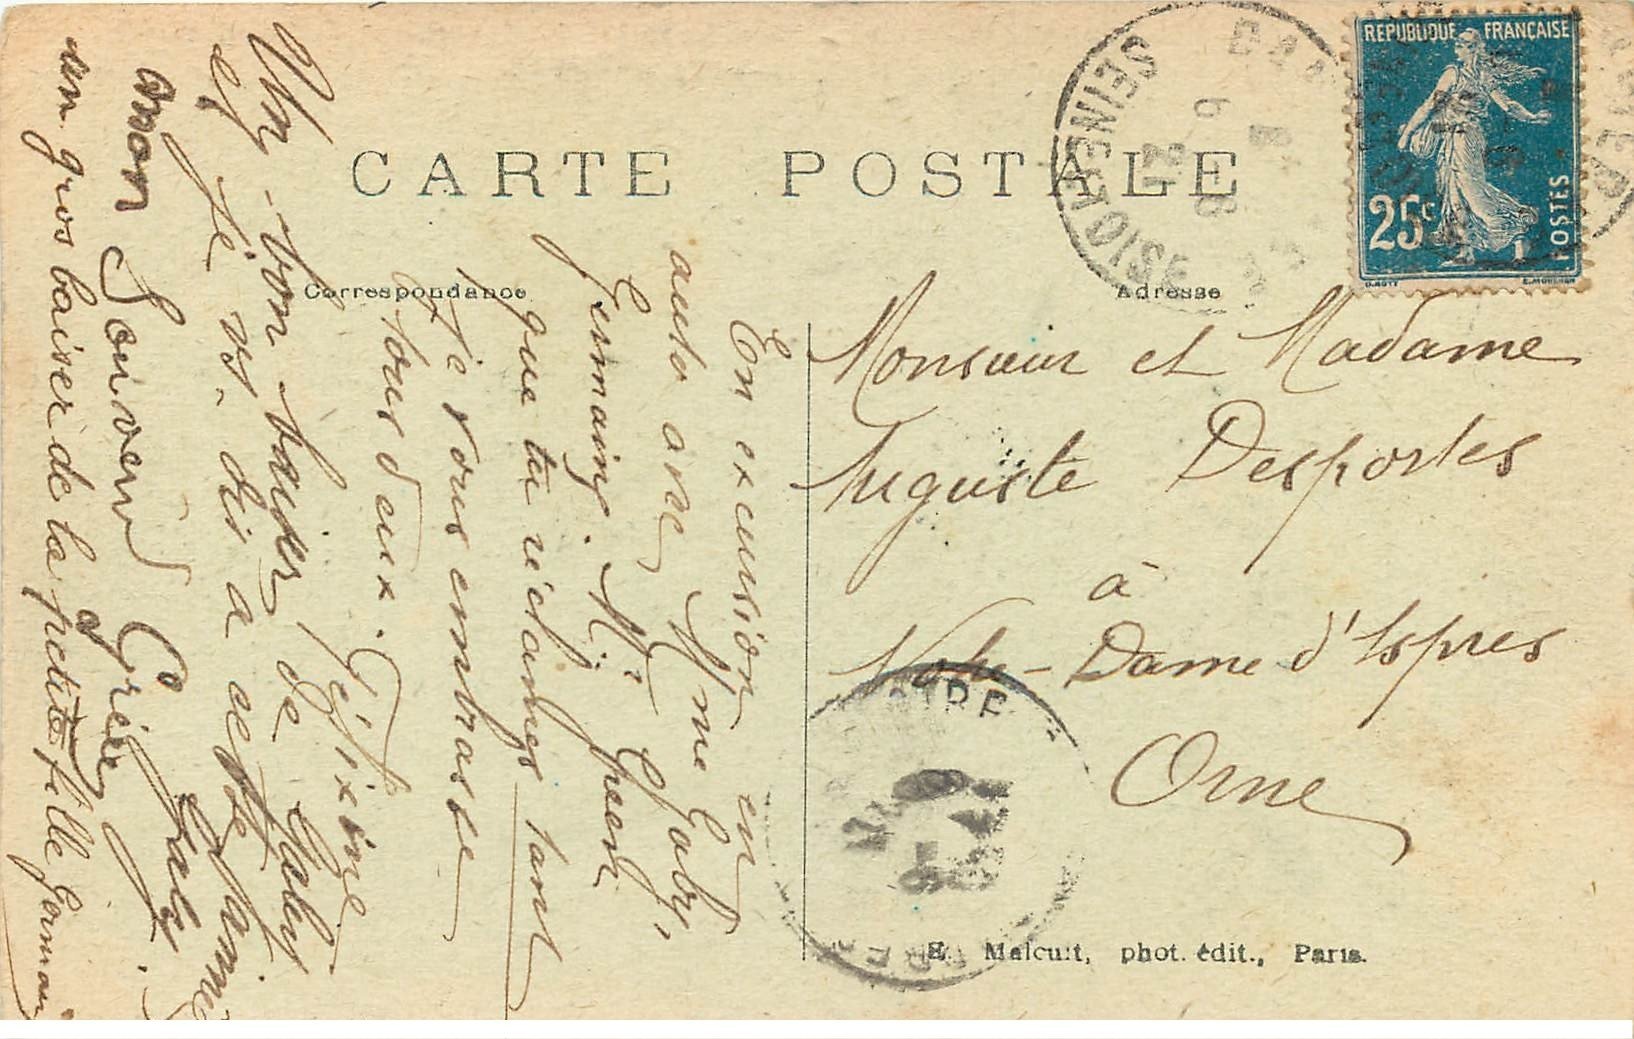 CARTE POSTALE
Correspondance
Adresse
REPUBLIQUE FRANÇAISE
25c
POSTES
SEINE-ET-OISE
6
21
En excursion en
auto avec Mme Gaby,
Germaine. Mr Green
que tu réclames tant
et je vous embrasse
tous deux.
Un bon baiser de Gaby
et je vs. dis à cette
mon Souvenir
un gros baiser de la petite fille
Monsieur et Madame
Auguste Desportes
à
Notre-Dame d'Aspres
Orne
E. Malcuit, phot. édit., Paris.